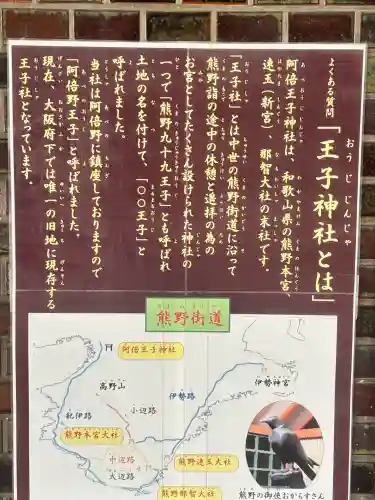 よくある質問
「王子神社とは」
おうじじんじゃ
阿倍王子神社は、和歌山県の熊野本宮、
速玉(新宮)、那智大社の末社です。
「王子社」とは中世の熊野街道に沿って
熊野詣の途中の休憩と遥拝の為の
お宮としてたくさん設けられた神社の
一つで「熊野九十九王子」とも呼ばれ
土地の名を付けて、「〇〇王子」と
呼ばれました。
当社は阿倍野に鎮座しておりますので
「阿倍野王子」と呼ばれました。
現在、大阪府下では唯一の旧地に現存する
王子社となっています。
熊野街道
阿倍王子神社
高野山
伊勢路
伊勢神宮
小辺路
紀伊路
熊野本宮大社
中辺路
大辺路
熊野速玉大社
熊野那智大社
熊野の御使おからすさん